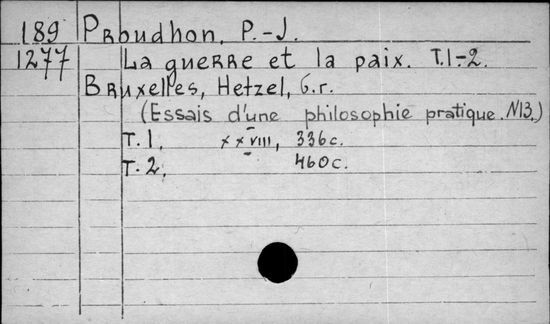 189 Proudhon, P.-J.
1277 La guerre et la paix. T.1-2.
Bruxelles, Hetzel, б.г.
(Essais d'une philosophie pratique. N13.)
T.1, XXVIII, 336c.
T.2, 460c.